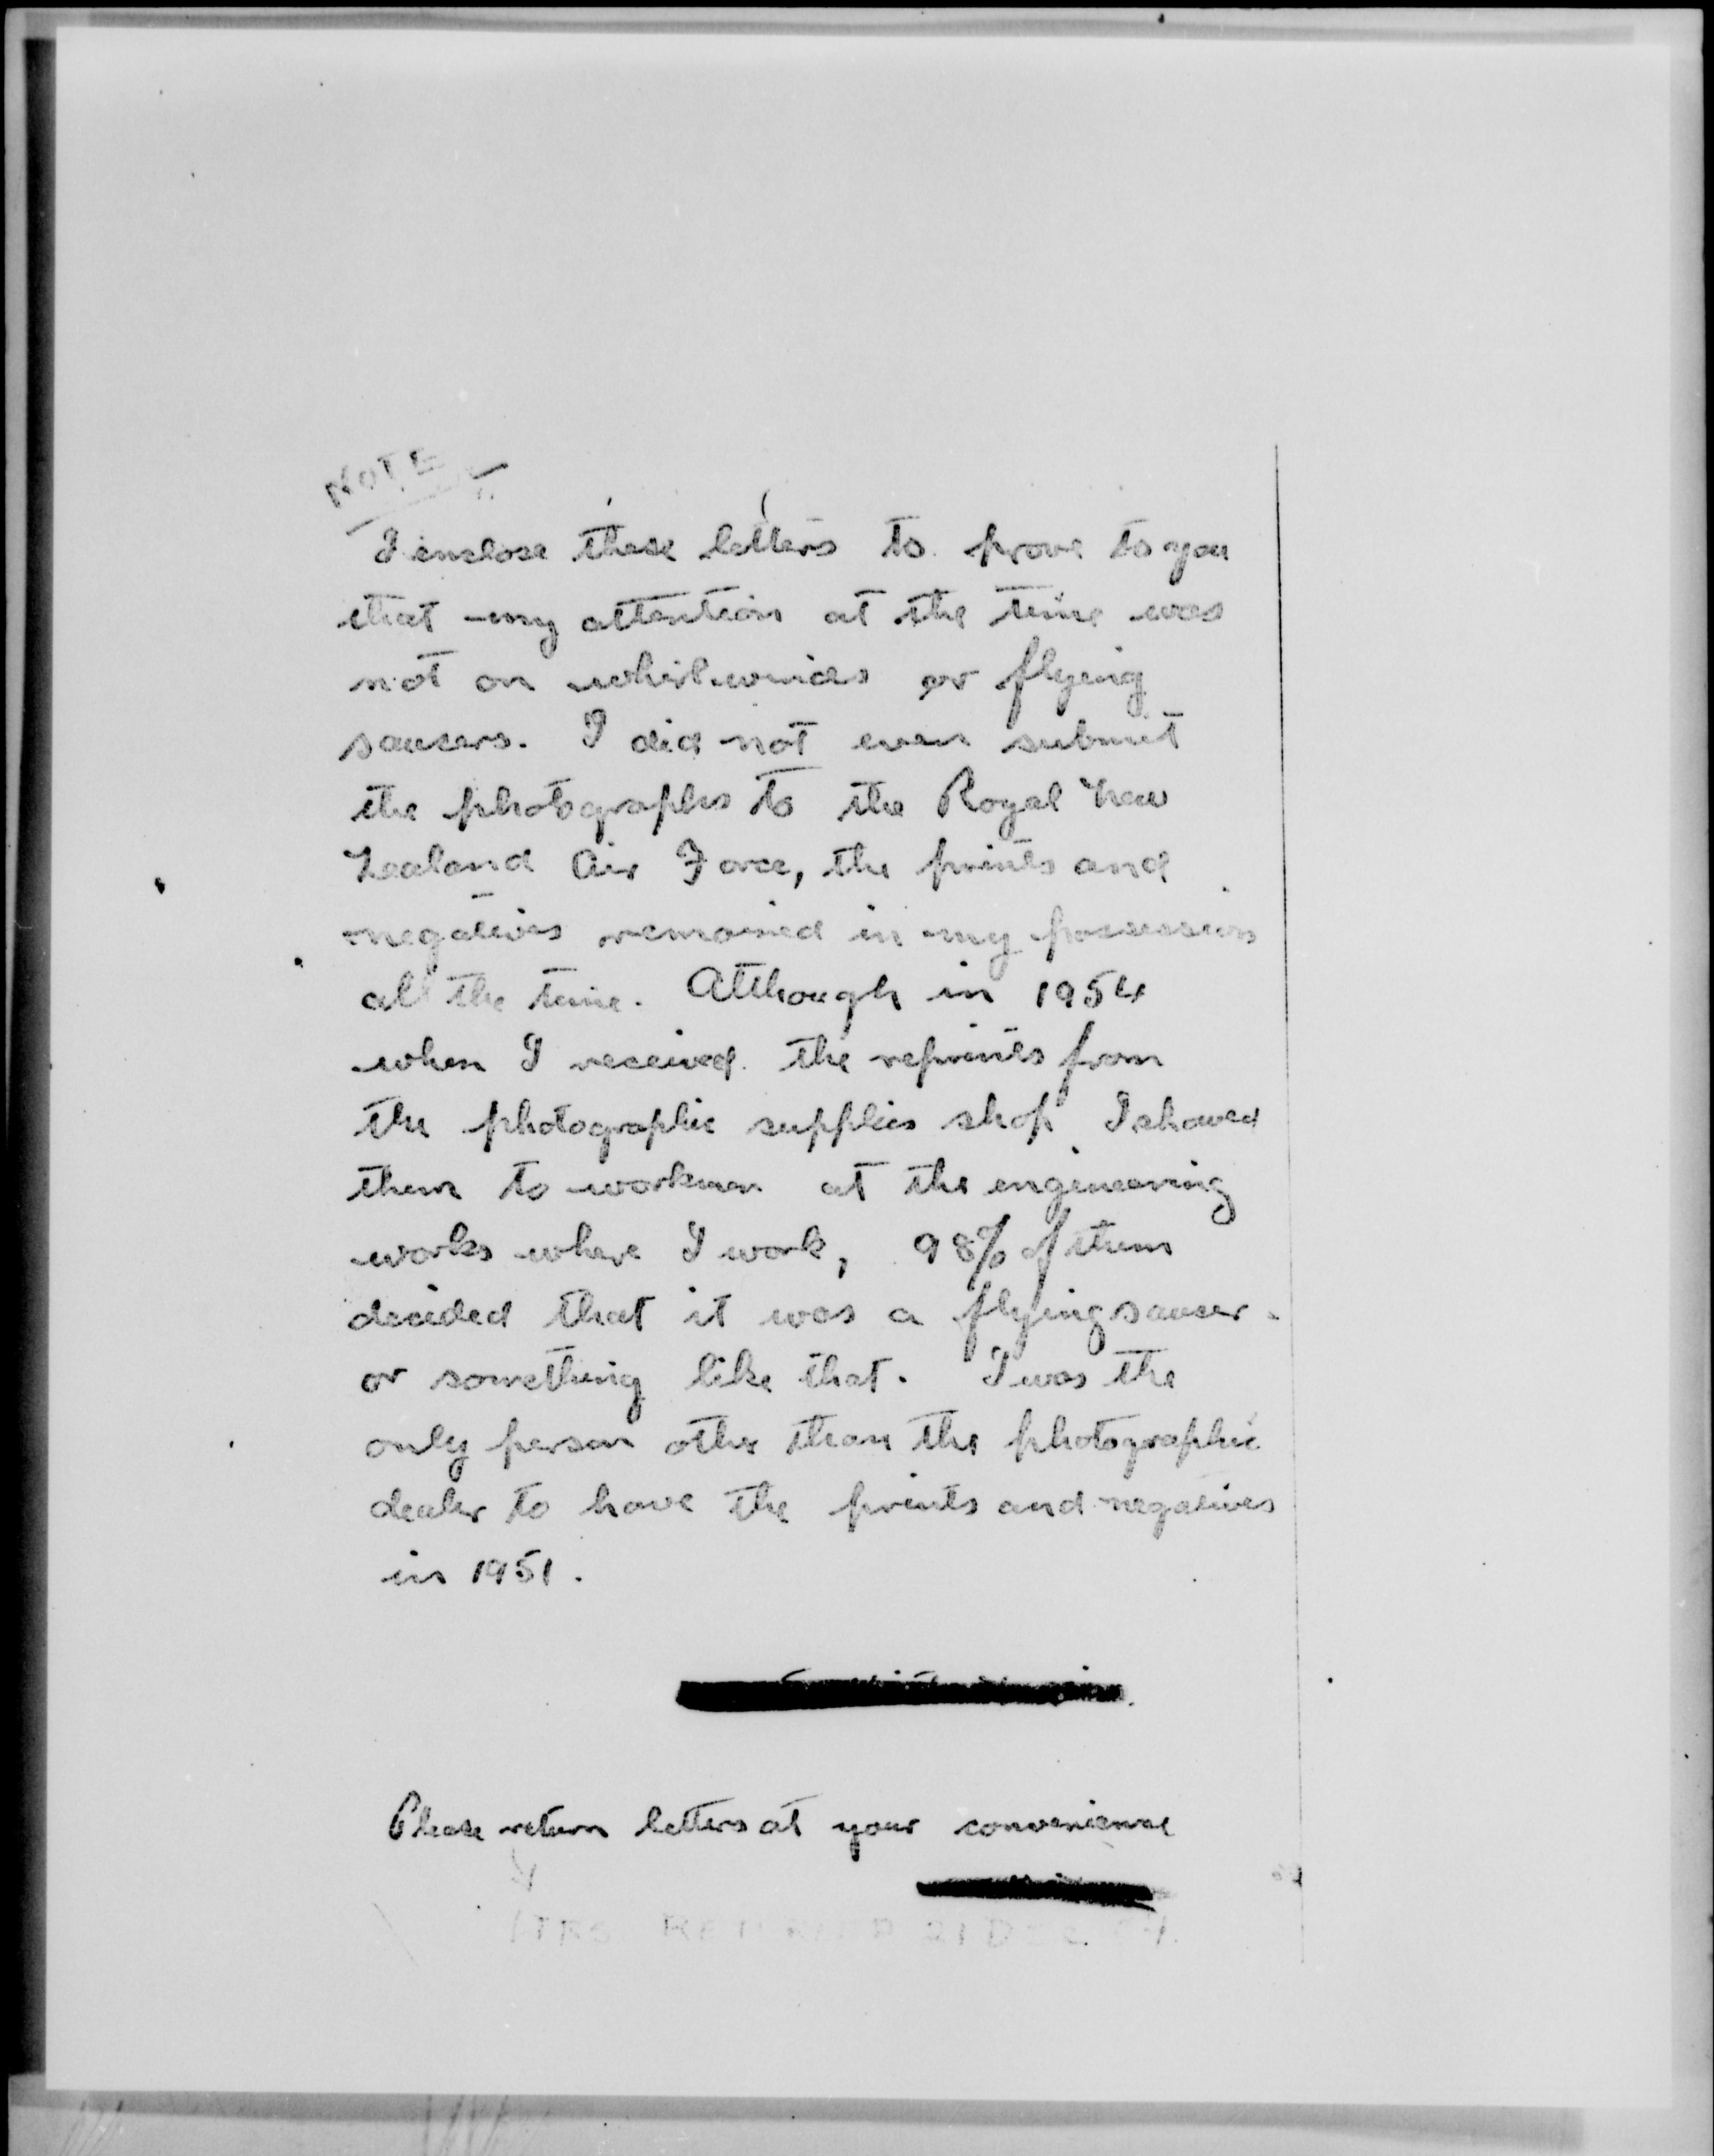 NOTE
I enclose these letters to prove to you
that my attention at the time was
not on whirlwinds or flying
saucers. I did not even submit
the photographs to the Royal New
Zealand Air Force, the prints and
negatives remained in my possession
all the time. Although in 1954
when I received the reprints from
the photographic supplies shop I showed
them to workmen at the engineering
works where I work, 98% of them
decided that it was a flying saucer
or something like that. I was the
only person other than the photographic
dealer to have the prints and negatives
in 1951.
Please return letters at your convenience
RETURNED 21 DEC